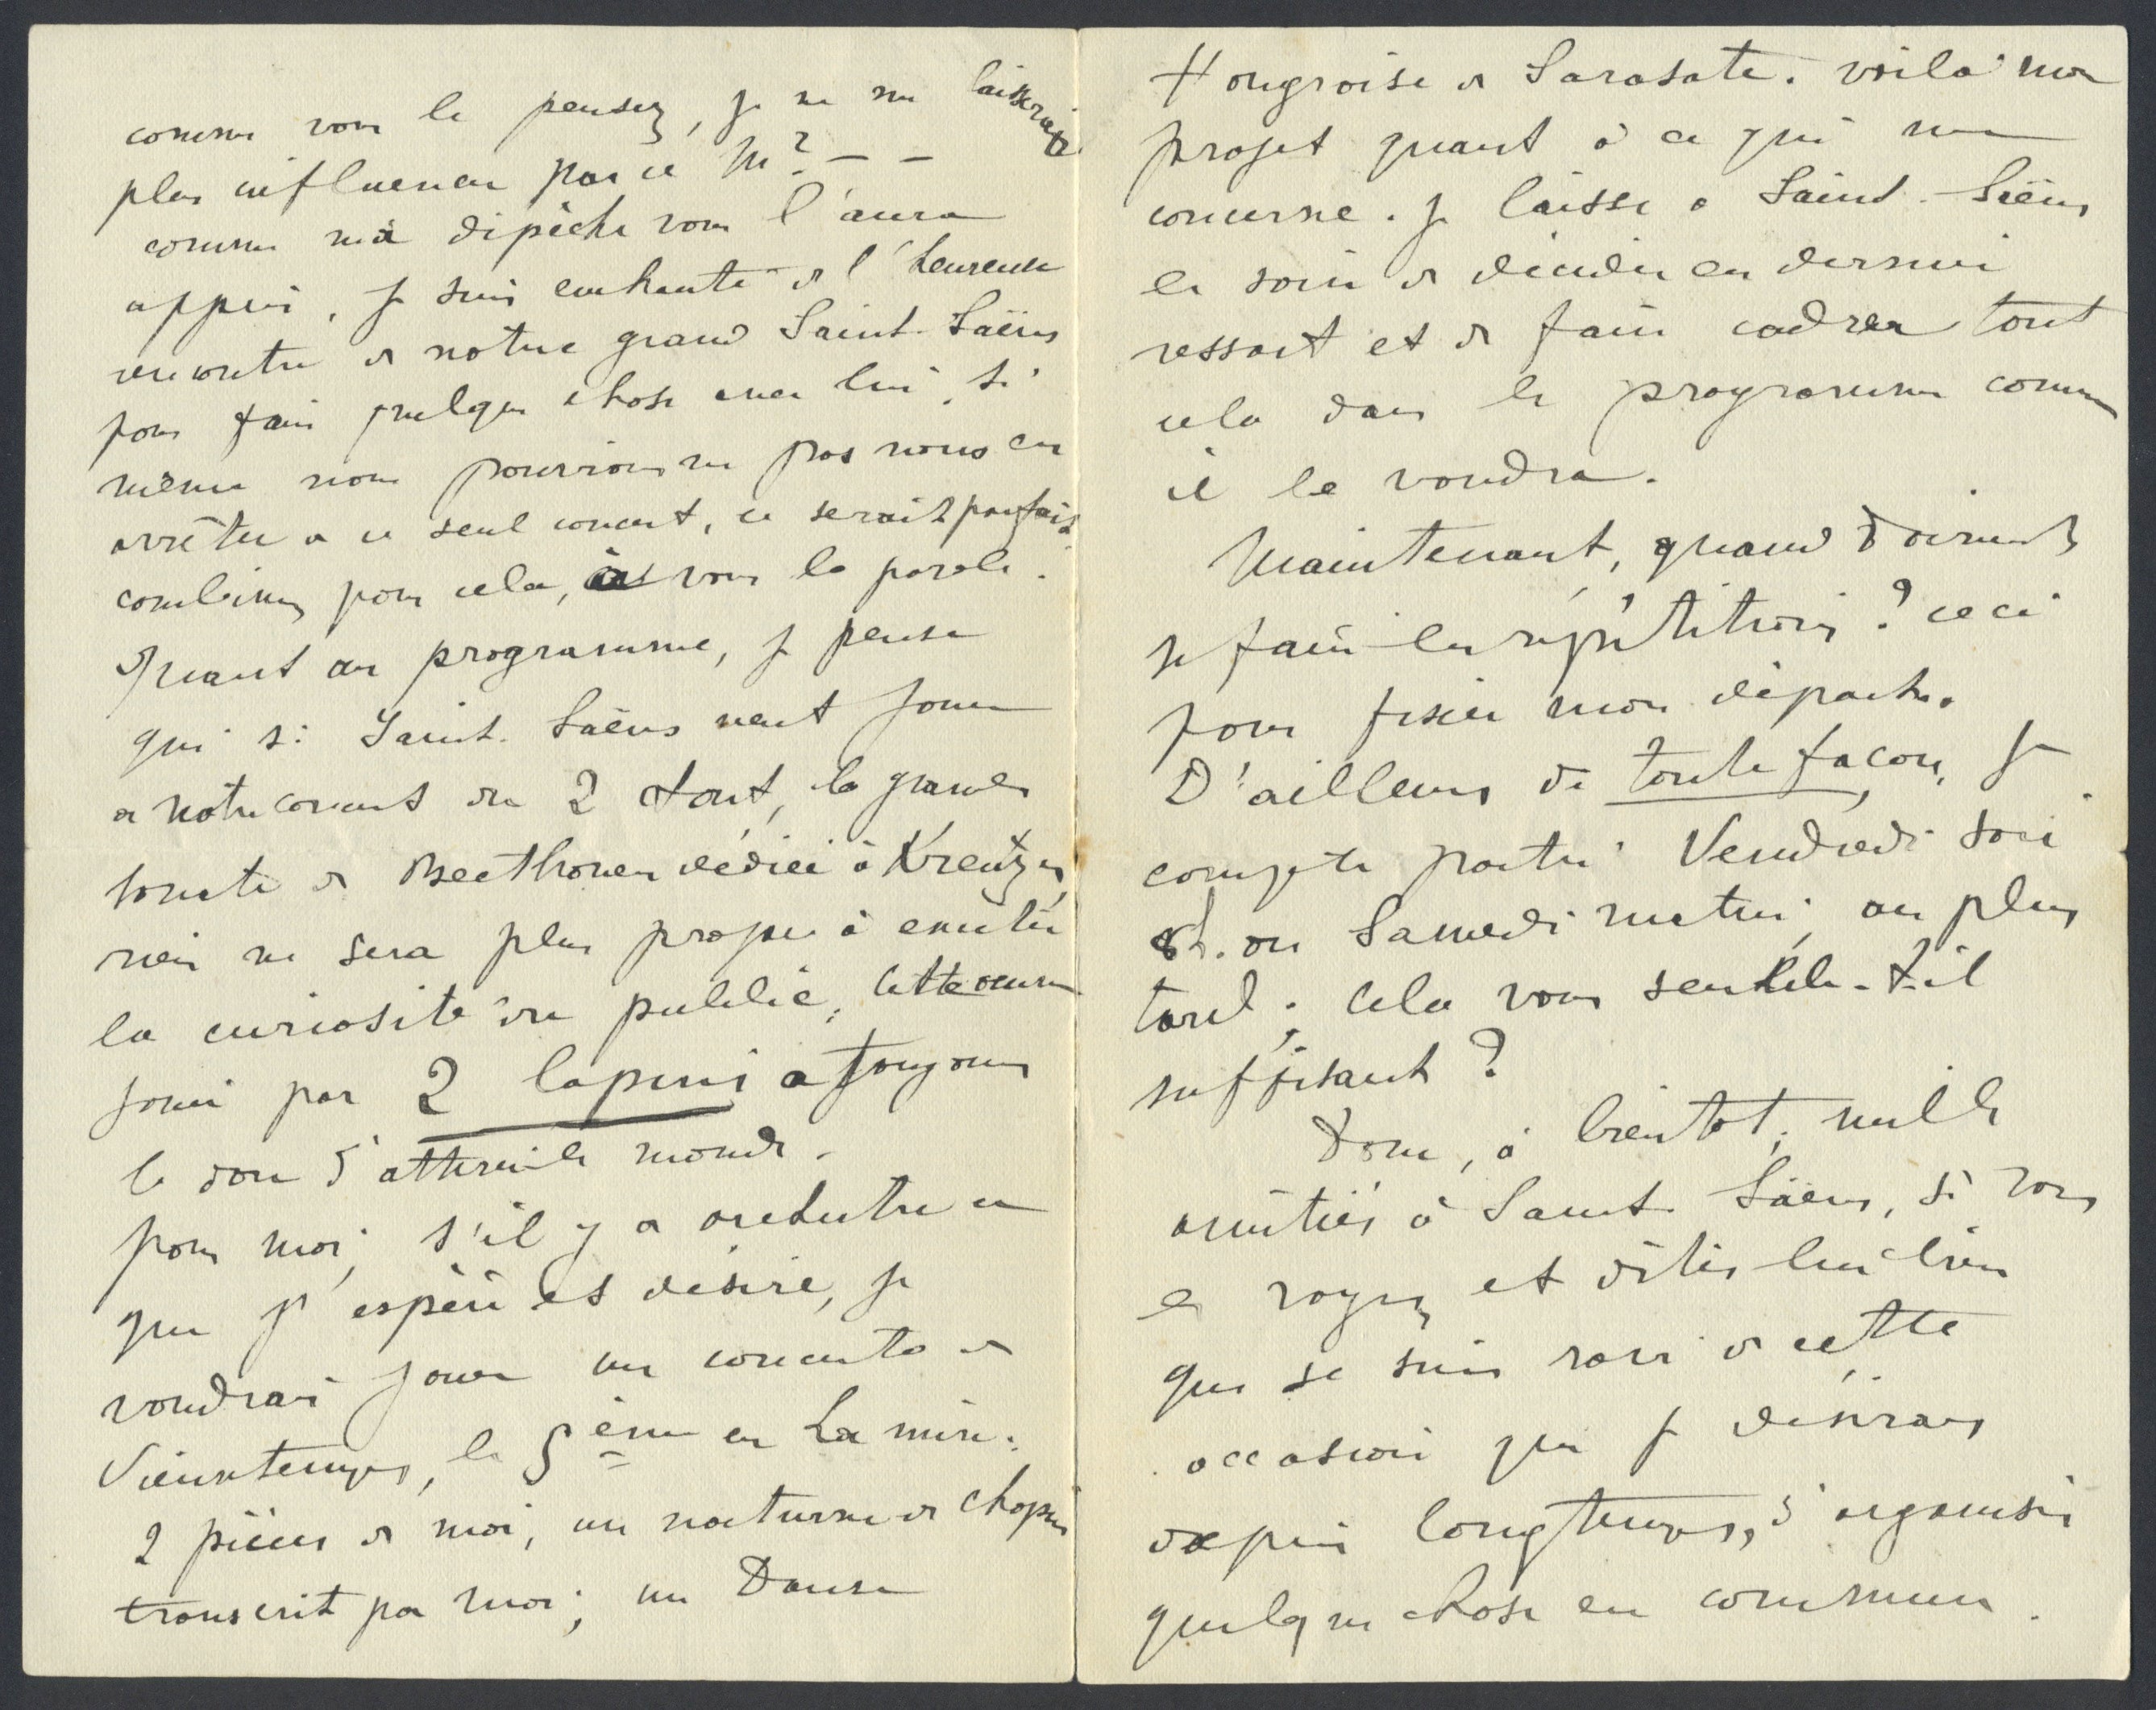 comme vous le pensez, je ne me laisserai
plus influencer par ce M? – –
comme ma dépêche vous l'aura
appris, je suis enchanté de l'heureuse
rencontre de notre grand Saint-Saëns
pour faire quelque chose avec lui, si
même nous pourrions ne pas nous en
arrêter à ce seul concert, ce serait parfait
combinez pour cela, à vous la parole.
Quant au programme, je pense
que si Saint-Saëns veut jouer
à notre concert du 2 Aout, la grande
sonate de Beethoven dédiée à Kreutzer,
rien ne sera plus propre à exciter
la curiosité du public, cette oeuvre
jouée par 2 lapins a toujours
le don d'attirer le monde.
pour moi, s'il y a orchestre ce
que j'espère et désire, je
voudrais jouer un concerto de
Vieuxtemps, le 5ème en La min:
2 pièces de moi, un nocturne de Chopin
transcrit par moi; une Danse
Hongroise de Sarasate. voilà mon
projet quant à ce qui me
concerne. je laisse à Saint-Saëns
le soin de décider en dernier
ressort et de faire cadrer tout
cela dans le programme comme
il le voudra.
Maintenant, quand doivent
se faire les répétitions? ceci
pour fixer mon départ.
D'ailleurs de toute façon, je
compte partir Vendredi soir
8h. ou Samedi matin, au plus
tard; cela vous semble-t-il
suffisant?
Donc, à bientôt, mille
amitiés à Saint-Saëns, si vous
le voyez et dites lui bien
que je suis ravi de cette
occasion que je désirais
depuis longtemps, d'organiser
quelque chose en commun.